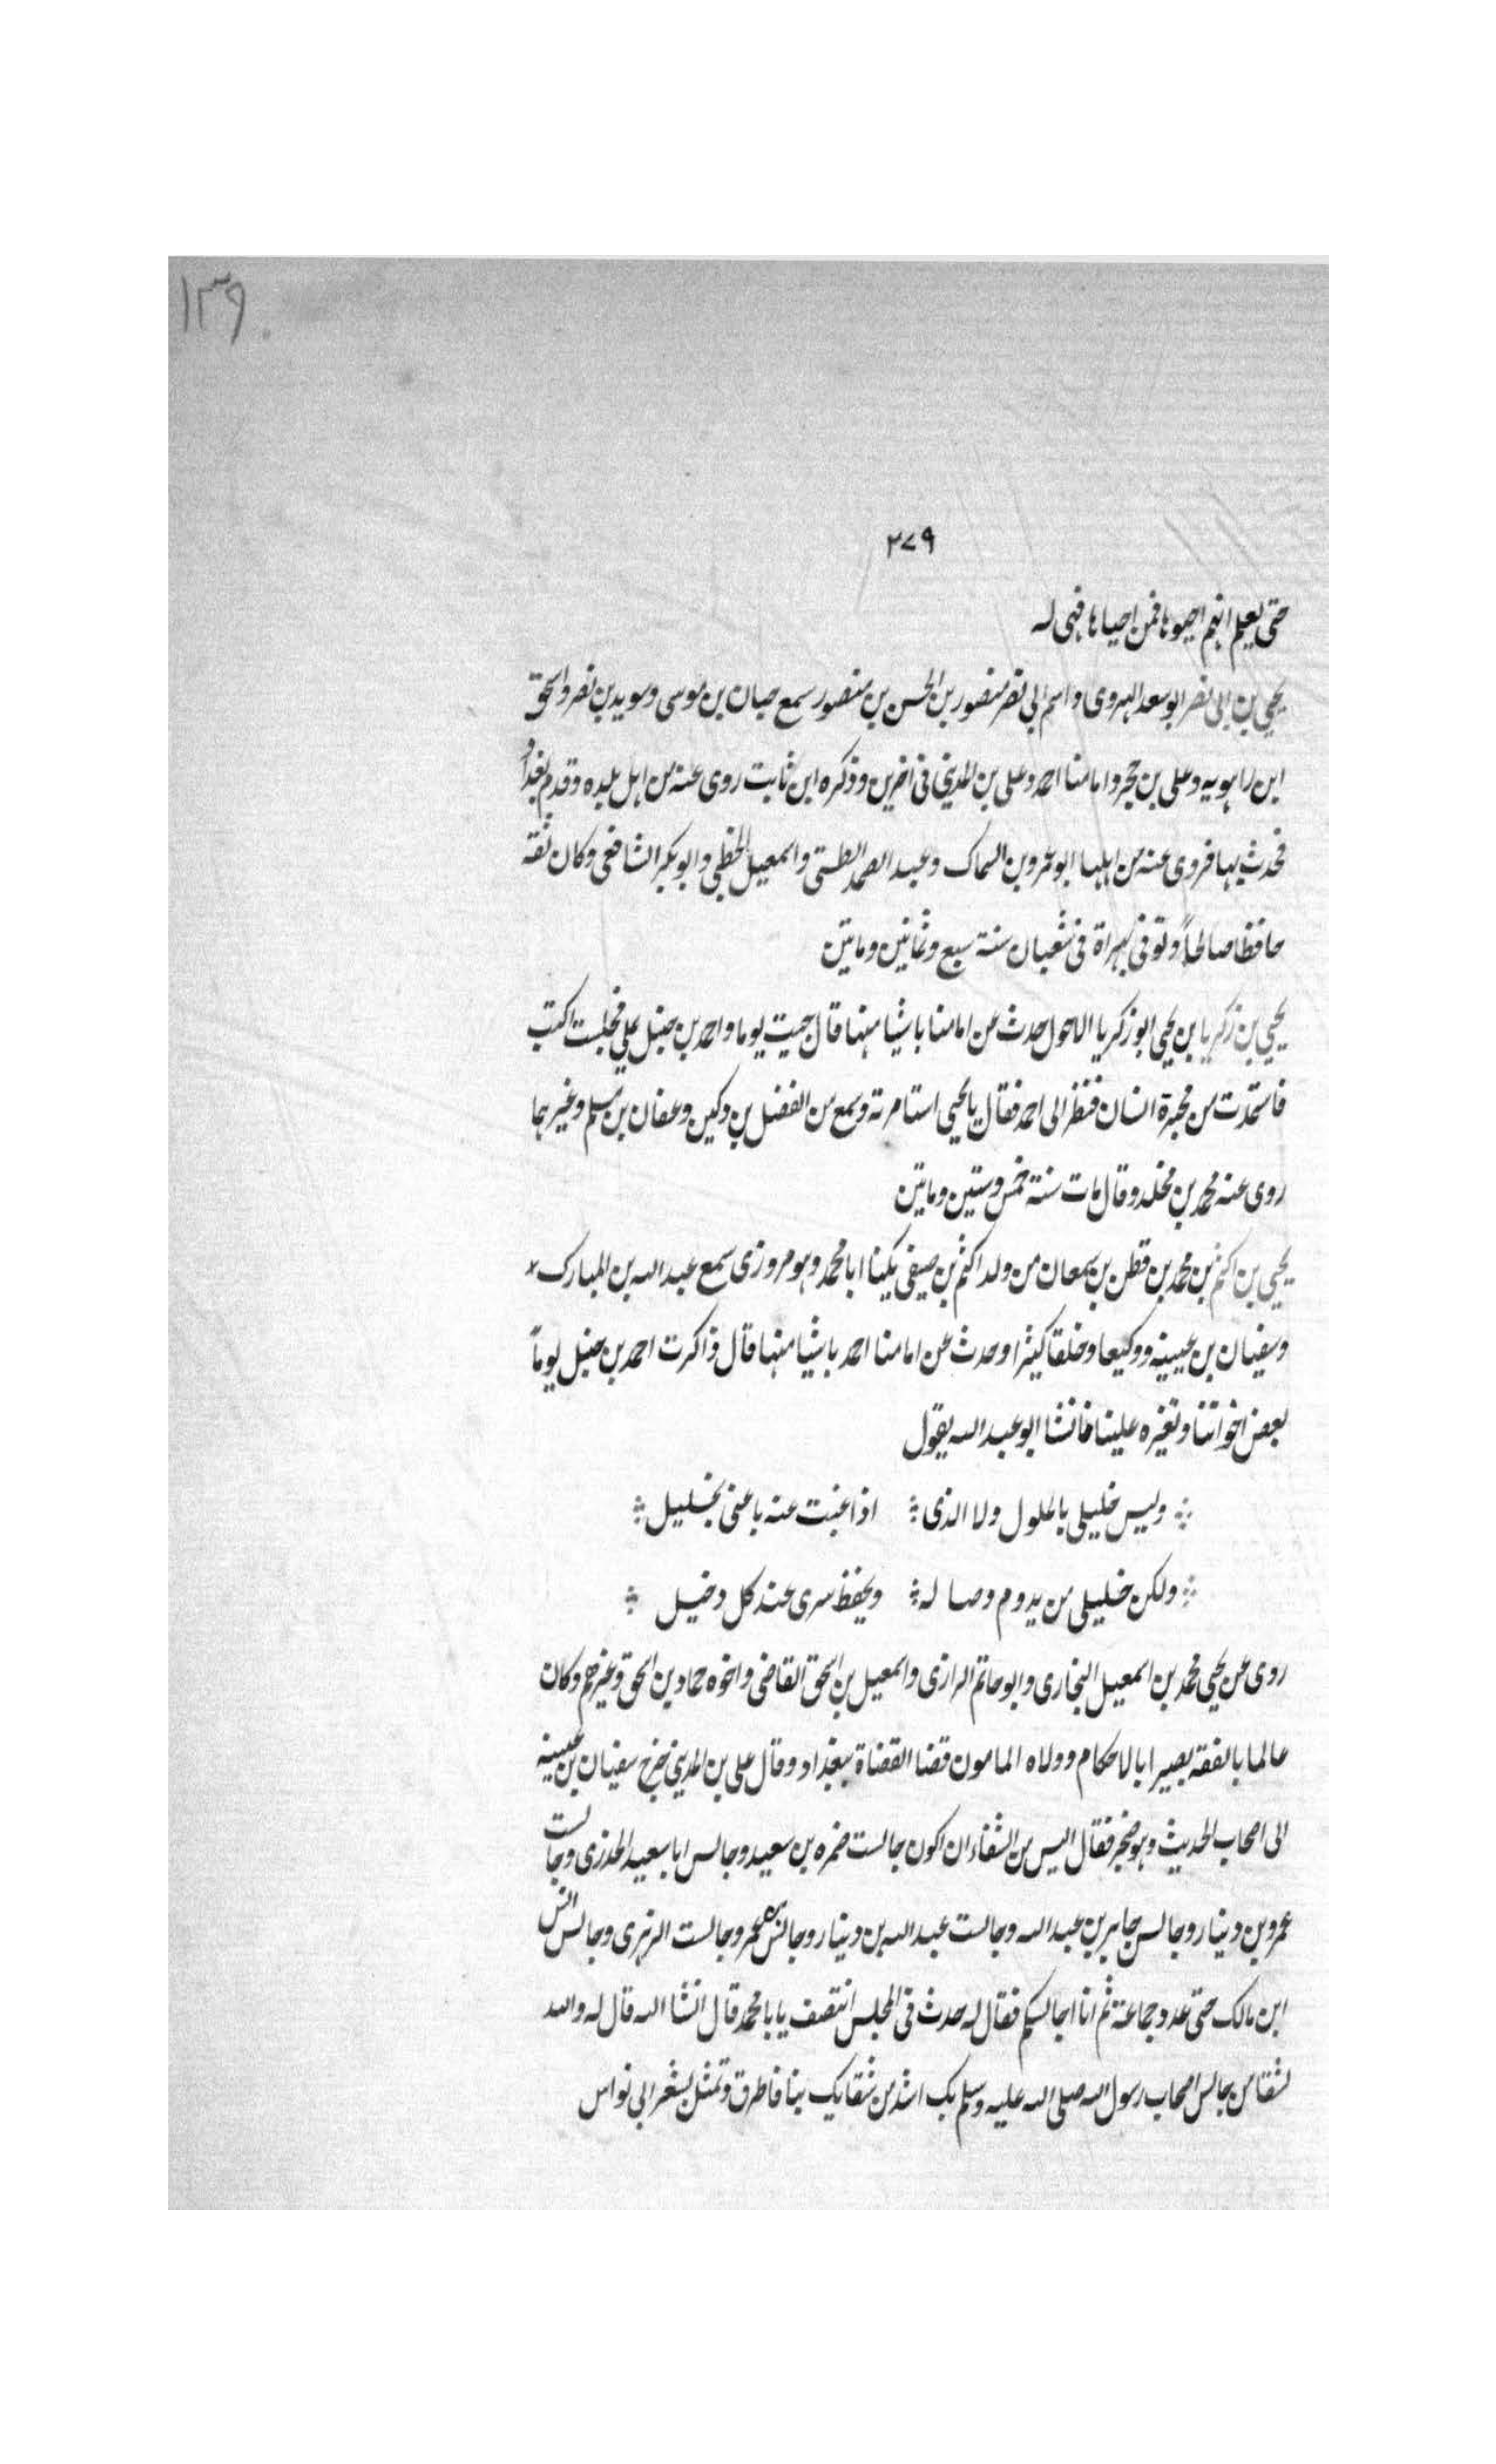 ١٣٩
٢٧٩
حتى يعلم انهم احيوها فمن احياها فهى له
يحيى بن ابى نصر ابو سعد الهروى واسم ابى نصر منصور بن الحسن بن منصور سمع حبان بن موسى وسويد بن نصر واسحق
ابن راهويه وعلى بن حجر وامامنا احمد وعلى بن المدينى فى اخرين وذكره ابن ثابت روى عنه من اهل بلده وقدم بغداد
فحدث بها فروى عنه من اهلها ابو عمرو بن السماك وعبد الصمد الطستى واسمعيل الخطبى وابو بكر الشافعى وكان ثقه
حافظا صالحاً وتوفى بهراة فى شعبان سنة سبع وثمانين وماتين
يحيى بن زكريا بن يحيى ابو زكريا الاحول حدث عن امامنا باشيا منها قال جيت يوما واحمد بن حنبل يملى فجلست اكتب
فاستمدت من محبرة انسان فنظر الى احمد فقال يا يحيى استامرته وسمع من الفضل بن دكين وعفان بن مسلم وغيرهما
روى عنه محمد بن مخلد وقال مات سنة خمس وستين وماتين
يحيى بن اكثم بن محمد بن قطن بن سمعان من ولد اكثم بن صيفى يكنا ابا محمد وهو مروزى سمع عبد الله بن المبارك
وسفيان بن عيينه ووكيعا وخلقا كثيرا وحدث عن امامنا احمد باشيا منها قال ذاكرت احمد بن حنبل يوماً
بعض اخواننا وتغيره علينا فانشا ابو عبد الله يقول
وليس خليلى بالملول ولا الذى اذا غبت عنه باعنى بخليل
ولكن خليلى من يدوم وصاله ويحفظ سرى عند كل دخيل
روى عن يحيى محمد بن اسمعيل البخارى وابو حاتم الرازى واسمعيل بن اسحق القاضى واخوه حماد بن اسحق وغيرهم وكان
عالما بالفقه بصيرا بالاحكام وولاه المامون قضا القضاة ببغداد وقال على بن المدينى خرج سفيان بن عيينه
الى اصحاب الحديث وهو ضجر فقال اليس من الشقاء ان اكون جالست ضمره بن سعيد وجالس ابا سعيد الخدرى وجالست
عمرو بن دينار وجالس جابر بن عبد الله وجالست عبد الله بن دينار وجالس بن عمر وجالست الزهرى وجالس انس
ابن مالك حتى عد وجماعة ثم انا اجالسكم فقال له حدث فى المجلس انتصف يا با محمد قال انشا الله قال له والله
لشقا من جالس اصحاب رسول الله صلى الله عليه وسلم بك اشد من شقايك بنا فاطرق وتمثل بشعر ابى نواس